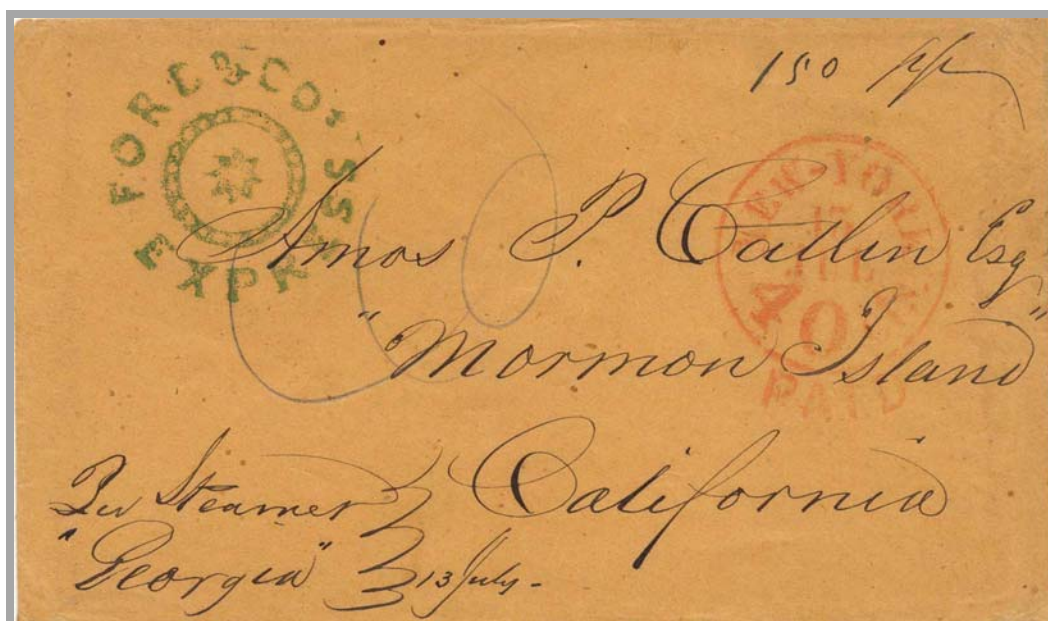 FORD & CO'S
EXPRESS
150
NEW-YORK
15
JUL
40
PAID
Amos P. Catlin Esq
"Mormon Island"
California
Per Steamer
"Georgia" 13 July-